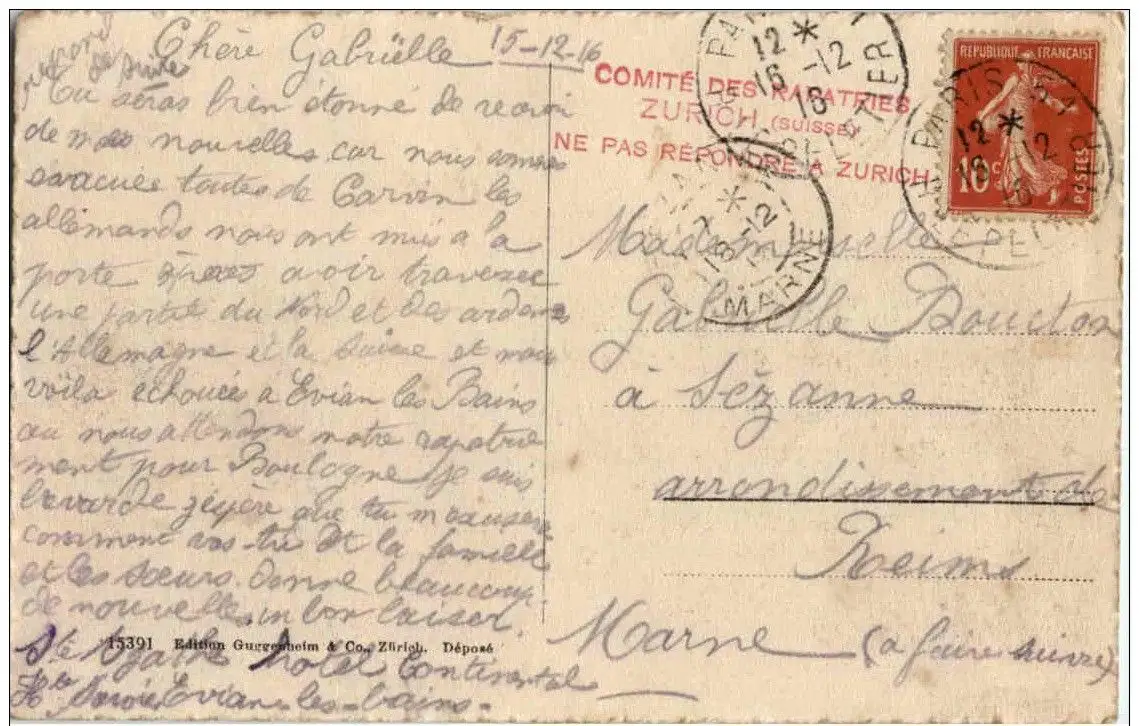 Chère Gabriëlle 15-12-16
répond de suite
Tu séras bien étonné de recevoir
de mes nouvelles car nous sommes
évacuée toutes de Carvin les
allemands nous ont mis a la
porte avoir traversée
une partie du Nord et les ardenes
l'Allemagne et la Suisse et nous
voila échouées a Evian les Bains
ou nous attendons notre rapatrie
ment pour Boulogne je suis
bavarde j'éspère que tu m'excusera
comment vas-tu et la famille
et les sœurs donne beaucoup
de nouvelle, un bon baiser.
hotel Continental
Hte Savoie Evian-les-bains-
15391 Edition Guggenheim & Co., Zürich. Déposé
COMITÉ DES RAPATRIES
ZURICH (SUISSE)
NE PAS RÉPONDRE A ZURICH
PARIS
12 *
16 -12
16
RÉPUBLIQUE FRANÇAISE
10 c
POSTES
PARIS
12 *
16 -12
16
* 
-12
MARNE
Mademoiselle
Gabrielle Bouton
à Sézanne
arrondissement de
Reims
Marne (a faire suivre)